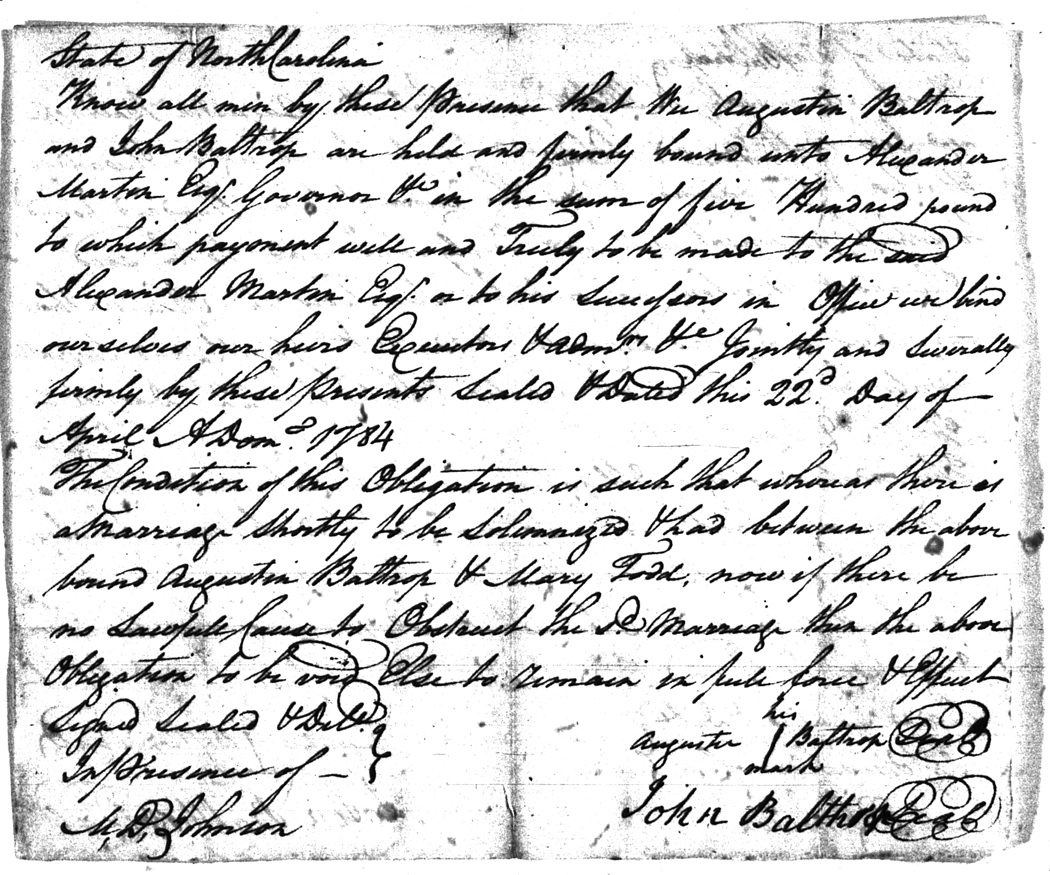 State of North Carolina
Know all men by these Presence that We Augustin Baltrop
and John Baltrop are held and firmly bound unto Alexander
Martin Esqr. Governor &c in the sum of five Hundred pound
to which payment well and Truly to be made to the said
Alexander Martin Esqr. or to his Successors in Office we bind
ourselves our heirs Executors & admrs. &c Jointly and Severally
firmly by these Presents Sealed & Dated this 22d. Day of
April A Domo. 1784
The Condition of this Obligation is such that whereas there is
a Marriage Shortly to be Solemnized & had between the above
bound Augustin Baltrop & Mary Todd, now if there be
no Lawfull Cause to Obstruct the Sd. Marriage then the above
Obligation to be void Else to remain in full force & Effect
Signed Sealed & Deld.
In Presence of
M. D. Johnson
his
Augustin Baltrop Seal
mark
John Balthrop Seal